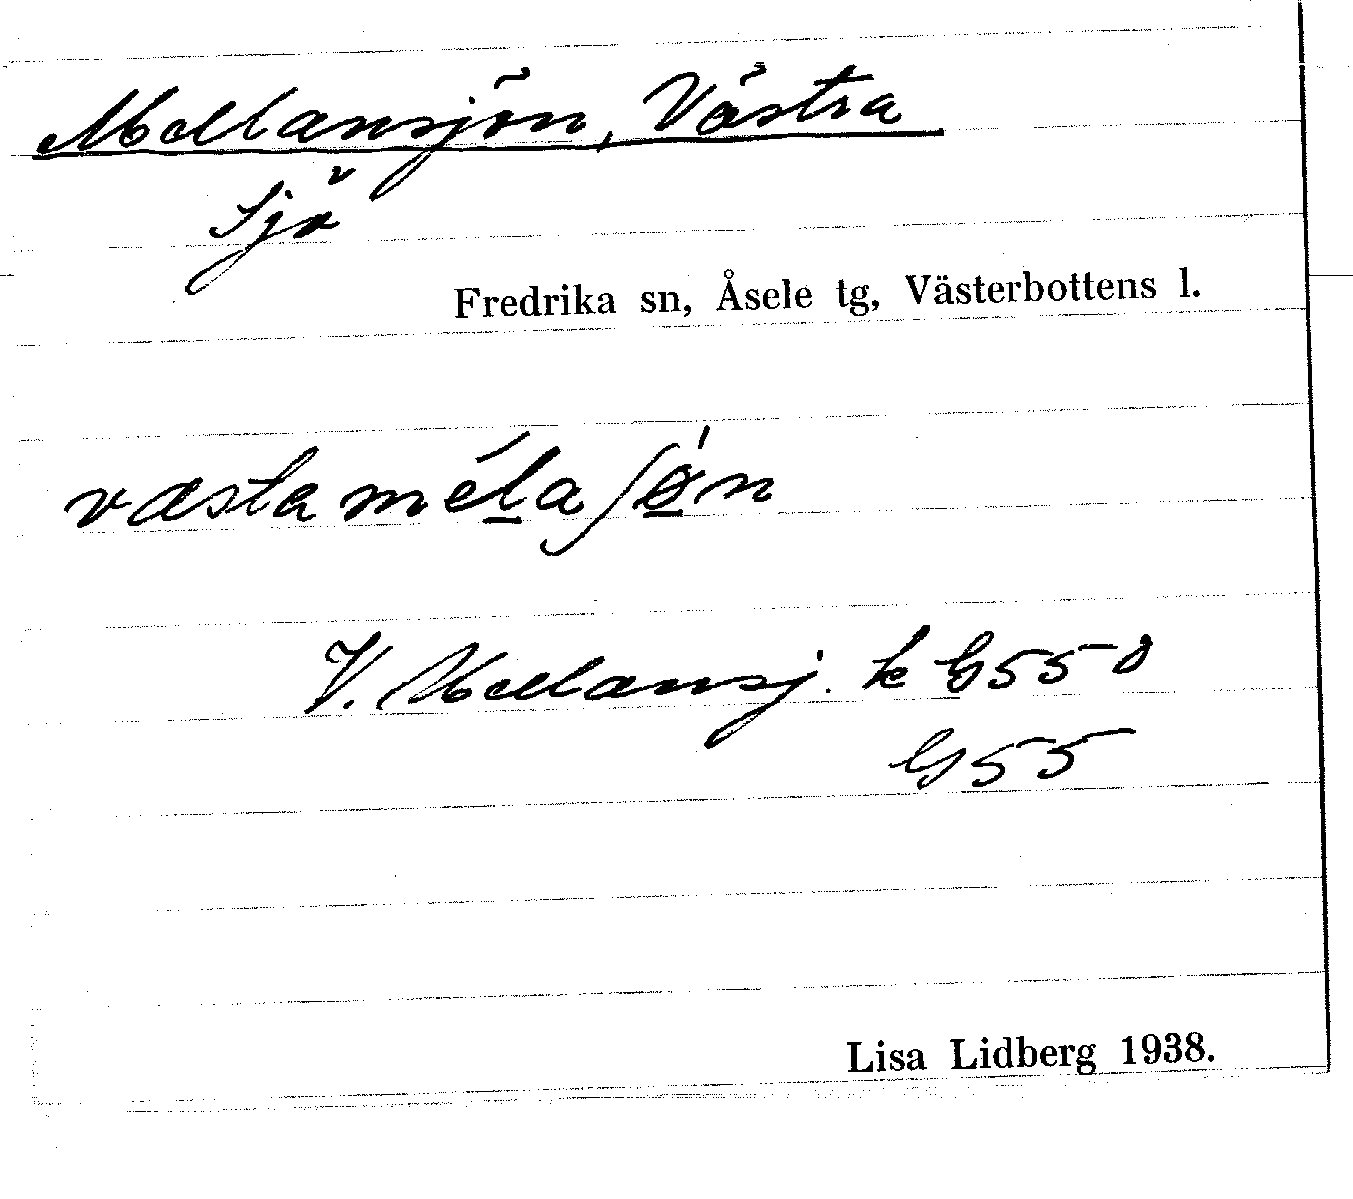 Mellansjön, Västra
Sjö
Fredrika sn, Åsele tg, Västerbottens l.
væsta mélaʃǿn
V. Mellansj. k G55 ö
G55
Lisa Lidberg 1938.